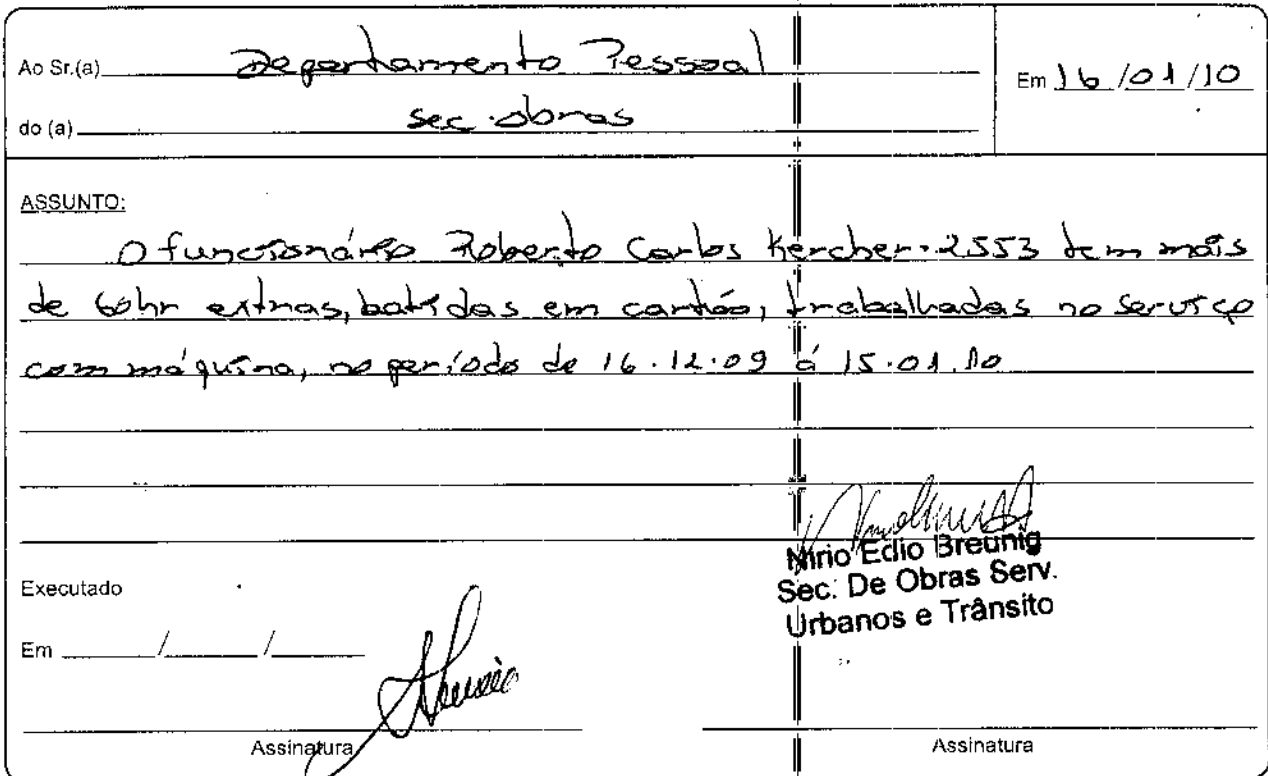 Ao Sr.(a) Departamento Pessoal
Em 16/01/10
do (a) sec. obras
ASSUNTO:
O funcionário Roberto Carlos Kercher - 2553 tem mais
de 60hr extras, batidas em cartão, trabalhadas no serviço
com máquina, no período de 16.12.09 á 15.01.10
Nirio Edio Breunig
Sec. De Obras Serv.
Urbanos e Trânsito
Executado
Em / /
Assinatura
Assinatura